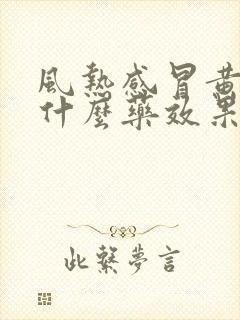 風熱感冒黃
什麼藥效果
此繫夢言